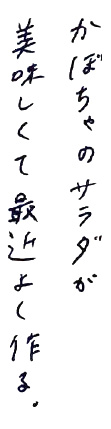 かぼちゃのサラダが
美味しくて最近よく作る.